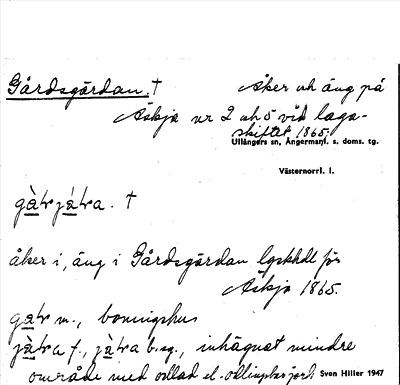 Gårdsgärdan. †
Åker och äng på
Äskja nr 2 och 5 vid laga-
skiftet 1865.
Ullångers sn, Ångermanl. s. doms. tg.
Västernorrl. l.
gàtrjátra. †
åker i, äng i Gårdsgärdan lgskhdl för
Äskja 1865.
gatr m., boningshus
jàtra f., jàtra b.sg., inhägnat mindre
område med odlad el. odlingsbar jord.
Sven Hiller 1947